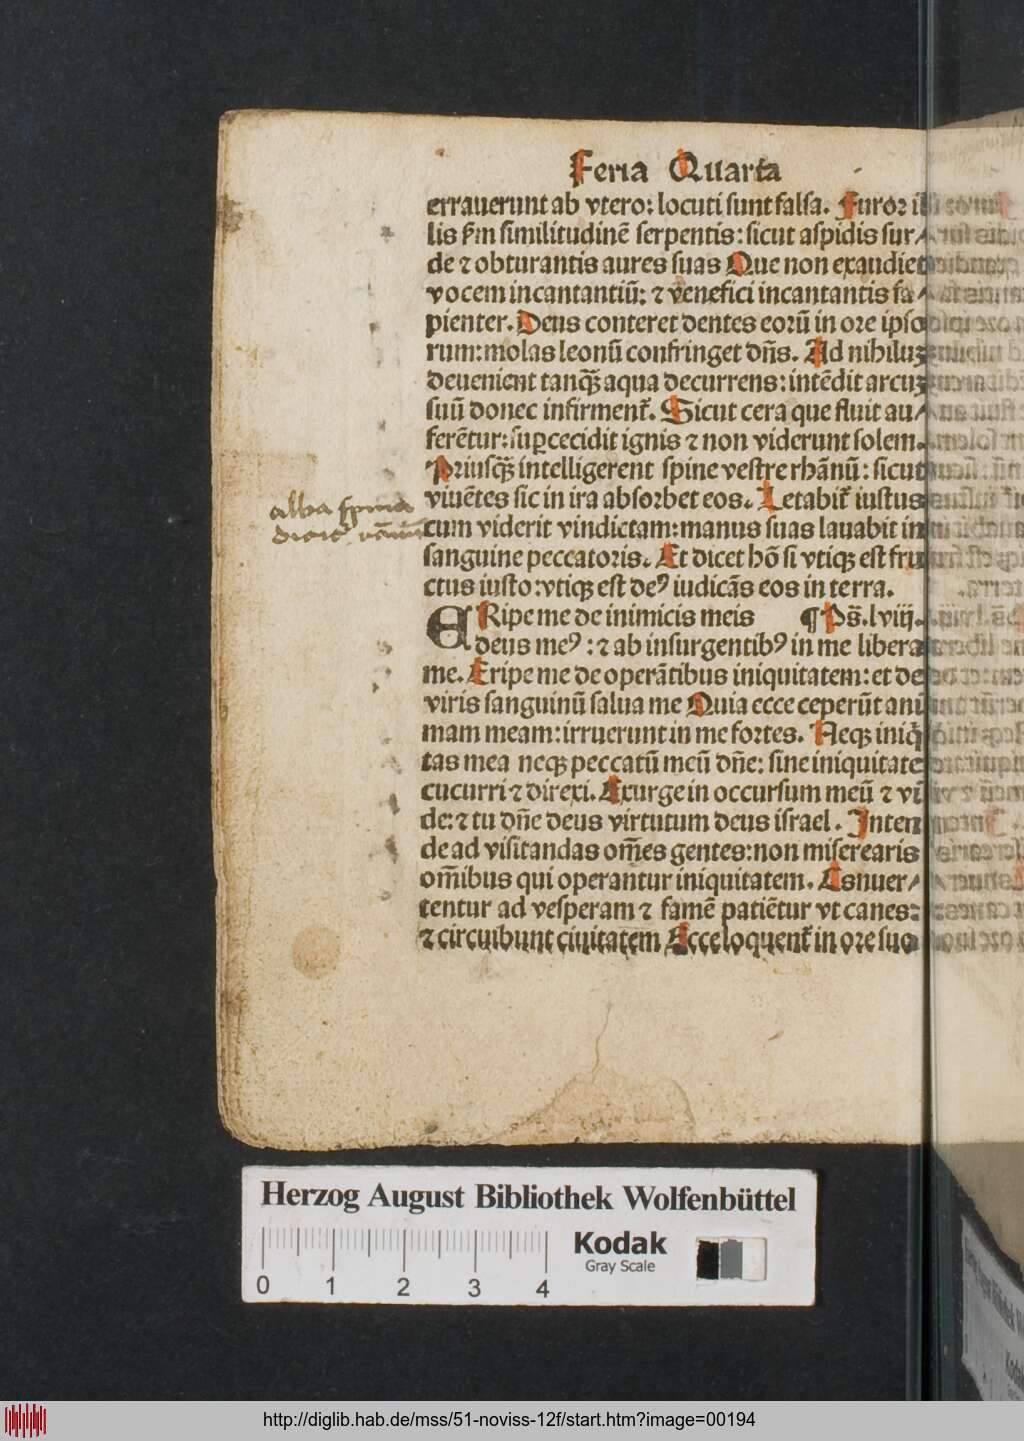 Feria Quarta
errauerunt ab vtero: locuti sunt falsa. Furor il
lis ẜm similitudinē serpentis: sicut aspidis sur⸗
de ⁊ obturantis aures suas Que non exaudiet
vocem incantantiū: ⁊ venefici incantantis sa⸗
pienter. Deus conteret dentes eorū in ore ipso
rum: molas leonū confringet dn̄s. Ad nihiluꝫ
deuenient tanꝙ̄ aqua decurrens: intēdit arcuꝫ
suū donec infirment᷑. Sicut cera que fluit au⸗
ferētur: suꝑcecidit ignis ⁊ non viderunt solem.
Priusꝙ̄ intelligerent spine vestre rhānū: sicut
viuētes sic in ira absorbet eos. Letabit᷑ iustus
cum viderit vindictam: manus suas lauabit in
sanguine peccatoris. Et dicet hō si vtiqꝫ est fru
ctus iusto: vtiqꝫ est deꝰ iudicās eos in terra.
ERipe me de inimicis meis ¶ Ps̄. lviij.
deus meꝰ: ⁊ ab insurgentibꝰ in me libera
me. Eripe me de operātibus iniquitatem: et de
viris sanguinū salua me Quia ecce ceperūt anī
mam meam: irruerunt in me fortes. Neqꝫ iniq̇
tas mea neqꝫ peccatū meū dn̄e: sine iniquitate
cucurri ⁊ direxi. Exurge in occursum meū ⁊ vī
de: ⁊ tu dn̄e deus virtutum deus israel. Inten
de ad visitandas om̄es gentes: non miserearis
om̄ibus qui operantur iniquitatem. Conuer⸗
tentur ad vesperam ⁊ famē patiētur vt canes:
⁊ circuibunt ciuitatem Ecce loquent᷑ in ore suo
alba spina
Herzog August Bibliothek Wolfenbüttel
Kodak
Gray Scale
0 1 2 3 4
http://diglib.hab.de/mss/51-noviss-12f/start.htm?image=00194